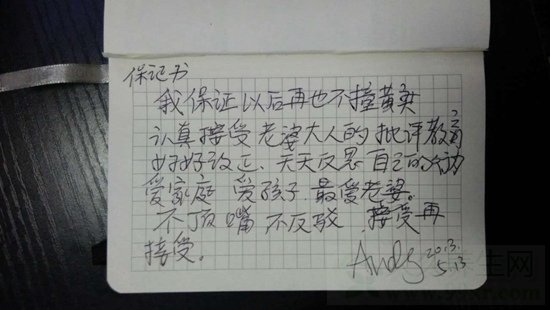 保证书
我保证以后再也不撞黄奕
认真接受老婆大人的批评教育
好好改正、天天反思自己的行动
爱家庭 爱孩子 最爱老婆。
不顶嘴 不反驳 接受再
接受。
Andy 2013.
5.13
生网